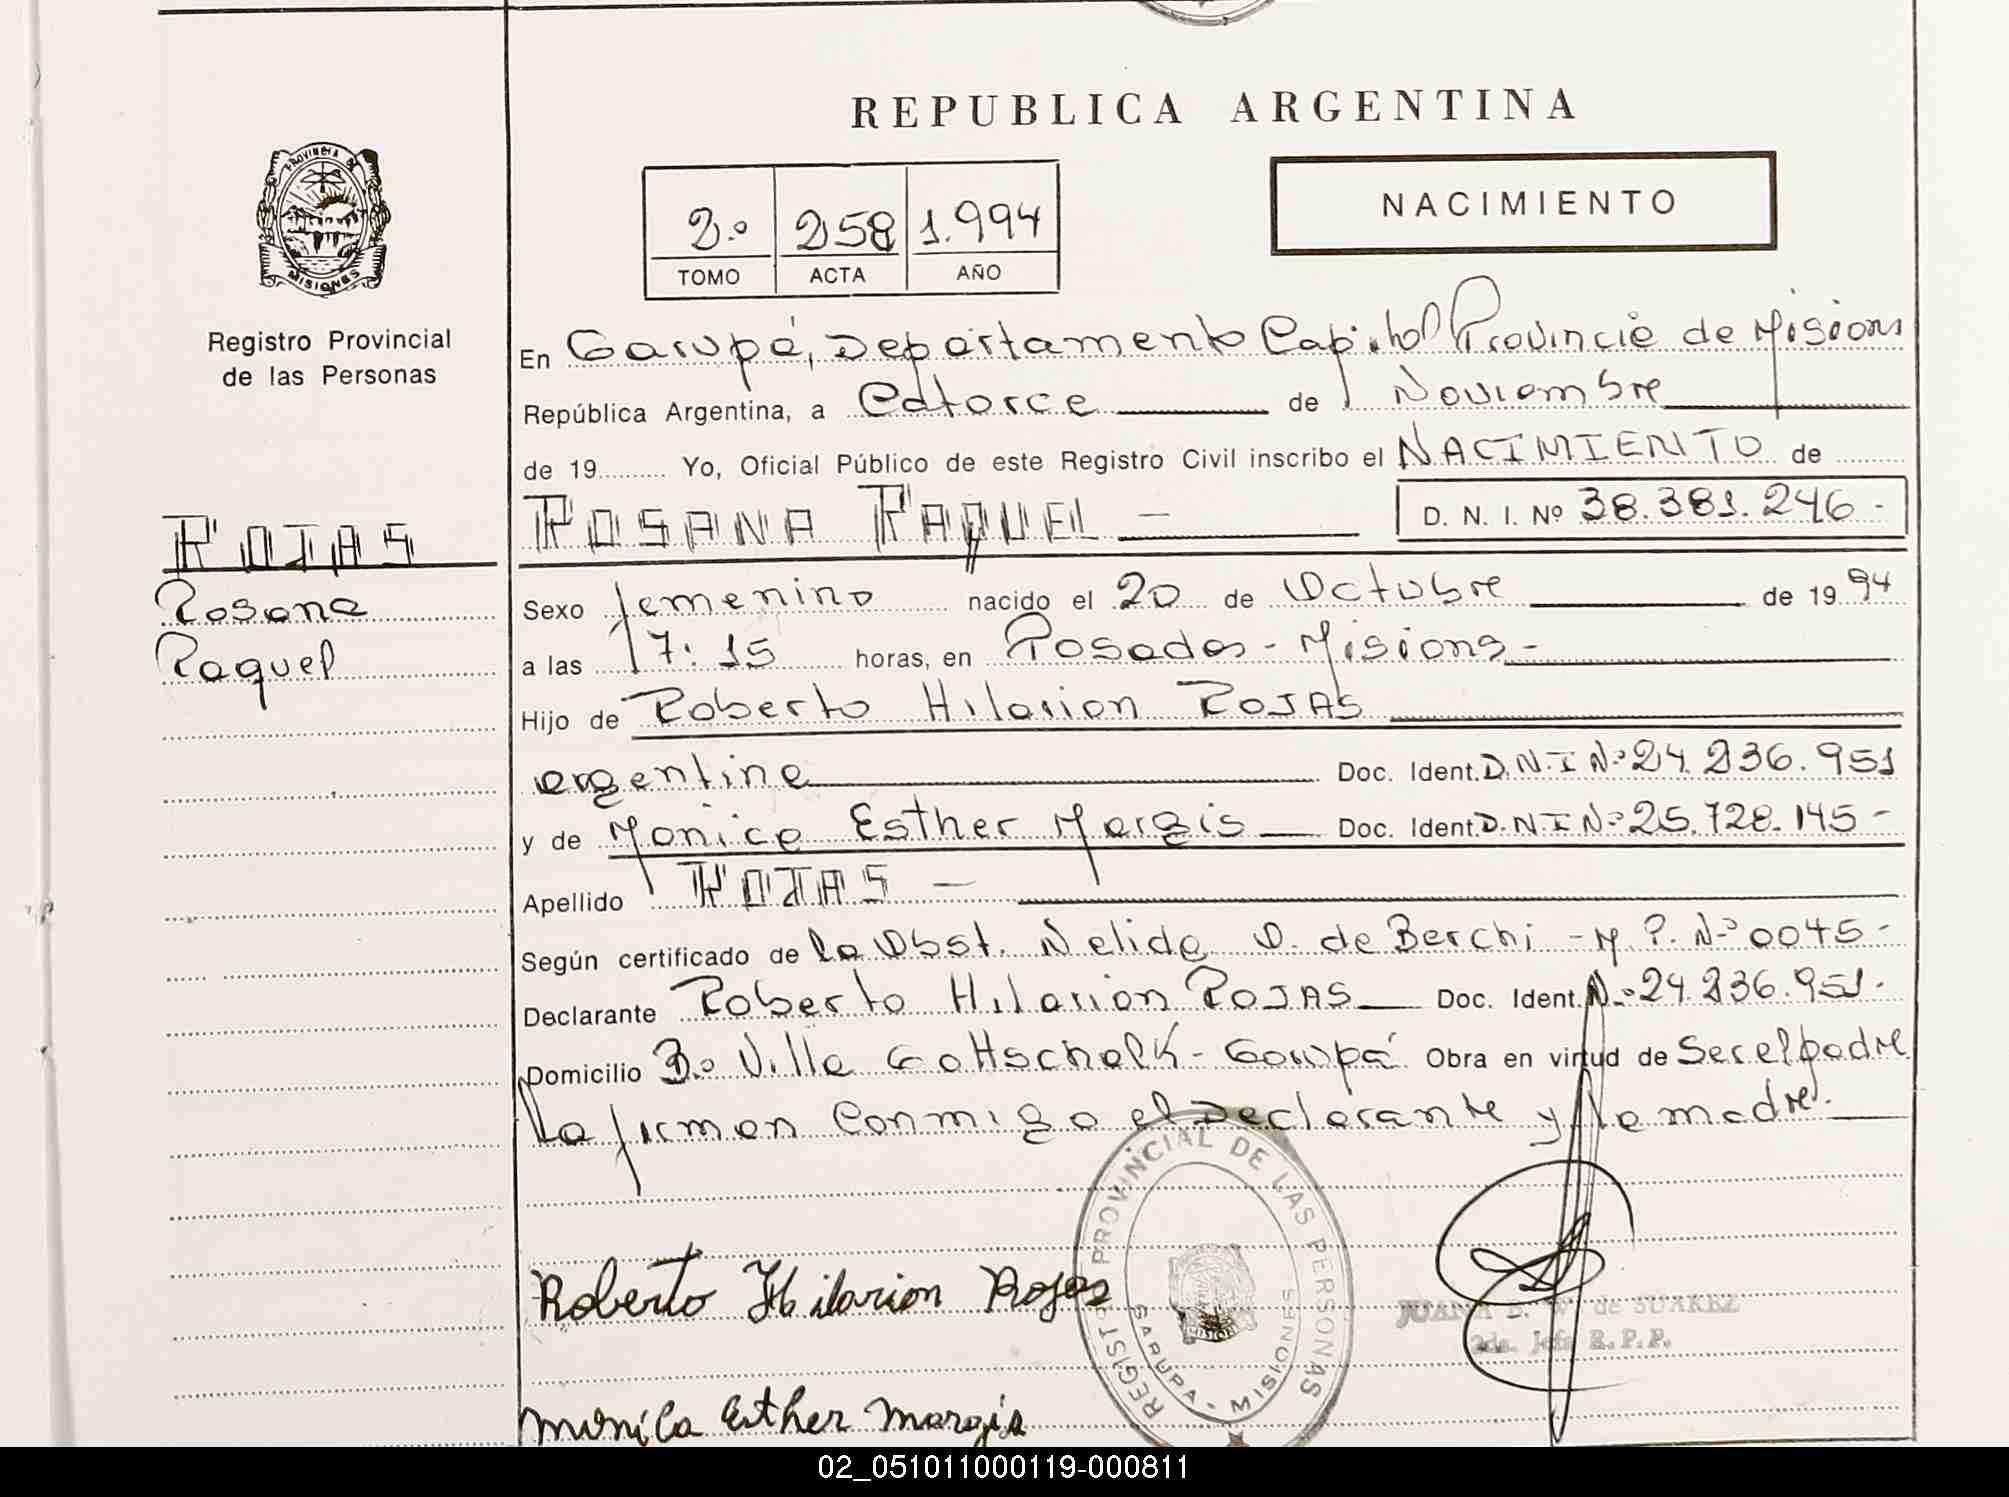 REPUBLICA ARGENTINA
PROVINCIA DE
MISIONES
NACIMIENTO
2º 258 1.994
TOMO ACTA AÑO
Registro Provincial
de las Personas
En Garupá, Departamento Capital Provincia de Misiones
República Argentina, a Catorce de Noviembre
de 19 Yo, Oficial Público de este Registro Civil inscribo el NACIMIENTO de
ROSANA RAQUEL - D. N. I. Nº 38.381.246.-
ROJAS
Rosana
Raquel
Sexo femenino nacido el 20 de Octubre de 19 94
a las 17:15 horas, en Posadas - Misiones -
Hijo de Roberto Hilarion ROJAS
argentina Doc. Ident. D.N.I Nº 24.236.951
y de Monica Esther Margis Doc. Ident. D.N.I Nº 25.728.145-
Apellido ROJAS -
Según certificado de la Obst. Nelida O. de Berchi - M.P. Nº 0045-
Declarante Roberto Hilarion ROJAS Doc. Ident. Nº 24.236.951.
Domicilio Bº Villa Gottschalk - Garupá Obra en virtud de Ser el padre
La firman Conmigo el Declarante y la madre.
REGISTRO PROVINCIAL DE LAS PERSONAS
GARUPA - MISIONES
Roberto Hilarion Rojas
JUANA E. W. de SUAREZ
2da. Jefe R.P.P.
Monica Esther Margis
02_051011000119-000811